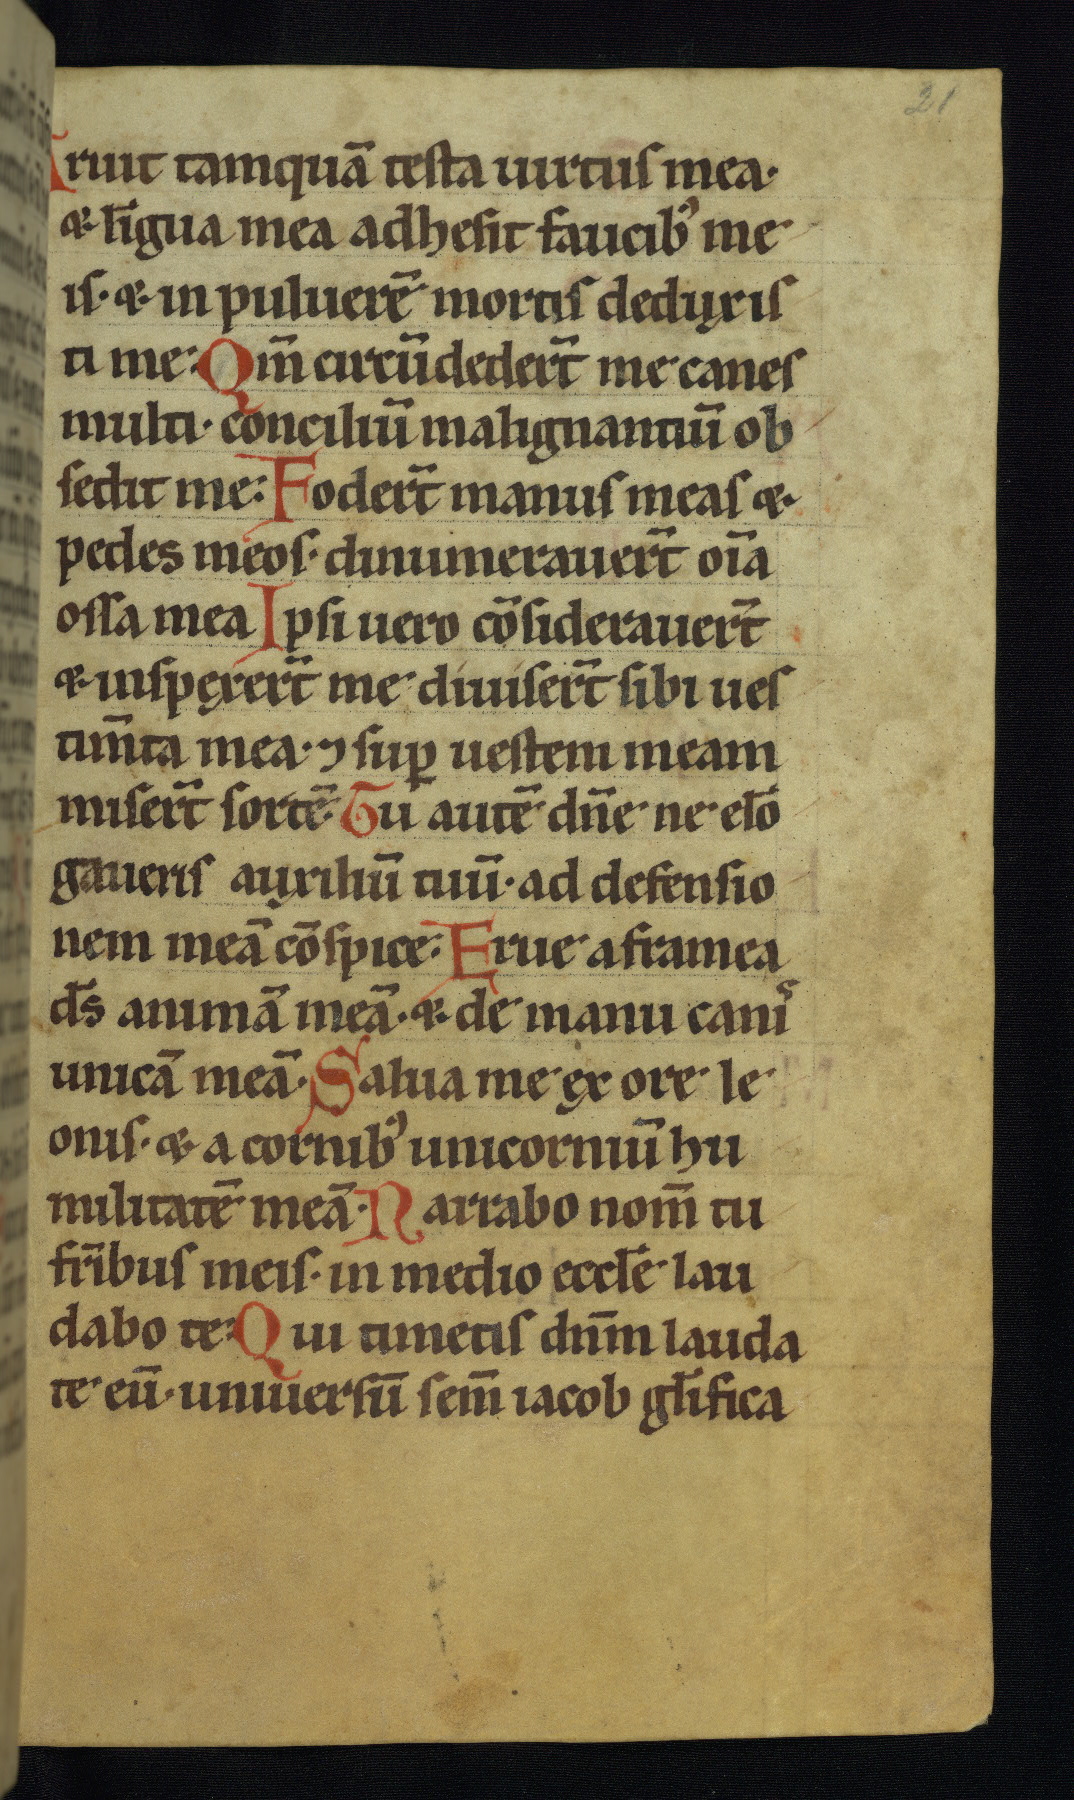 21
Aruit tamquā testa uirtus mea·
&· līgua mea adhesit faucib᾽ me
is· &· in puluerē mortis deduxis
ti me: Qm̄ circūdeder̄t me canes
multi· conciliū malignantiū ob
sedit me: Foder̄t manus meas &·
pedes meos· dinumerauer̄t oīa
ossa mea Ipsi uero cōsiderauer̄t
&· inspexer̄t me diuiser̄t sibi ues
tim̄ta mea· ⁊ sup̱ uestem meam
miser̄t sortē Tu autē dn̄e ne elō
gaueris auxiliū tuū· ad defensio
nem meā cōspice: Erue a framea
ds̄ animā meā· &· de manu canis
unicā meā· Salua me ex ore le
onis· &· a cornib᾽ unicorniū hu
militatē meā· Narrabo nom̄ tu
fr̄ibus meis· in medio eccl̄e lau
dabo te: Qui timetis dnm̄ lauda
te eū· uniuersū sem̄ iacob gl̄ifica